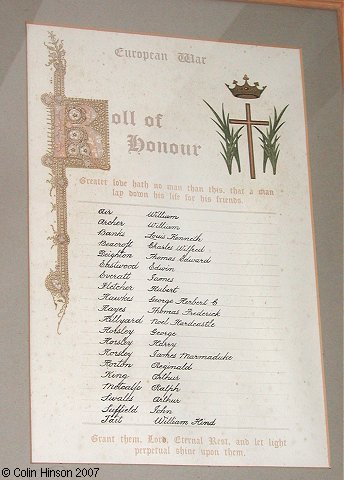 European War
Roll of
Honour
Greater love hath no man than this, that a man
lay down his life for his friends.
Air William
Archer William
Banks Louis Kenneth
Beacroft Charles Wilfred
Deighton Thomas Edward
Eastwood Edwin
Everatt James
Fletcher Hubert
Hawkes George Herbert C
Hayes Thomas Frederick
Hillyard Noel Hardcastle
Horsley George
Horsley Harry
Horsley James Marmaduke
Horton Reginald
King Arthur
Metcalfe Ralph
Swalls Arthur
Suffield John
Tait William Hind
Grant them, Lord, Eternal Rest, and let light
perpetual shine upon them.
© Colin Hinson 2007